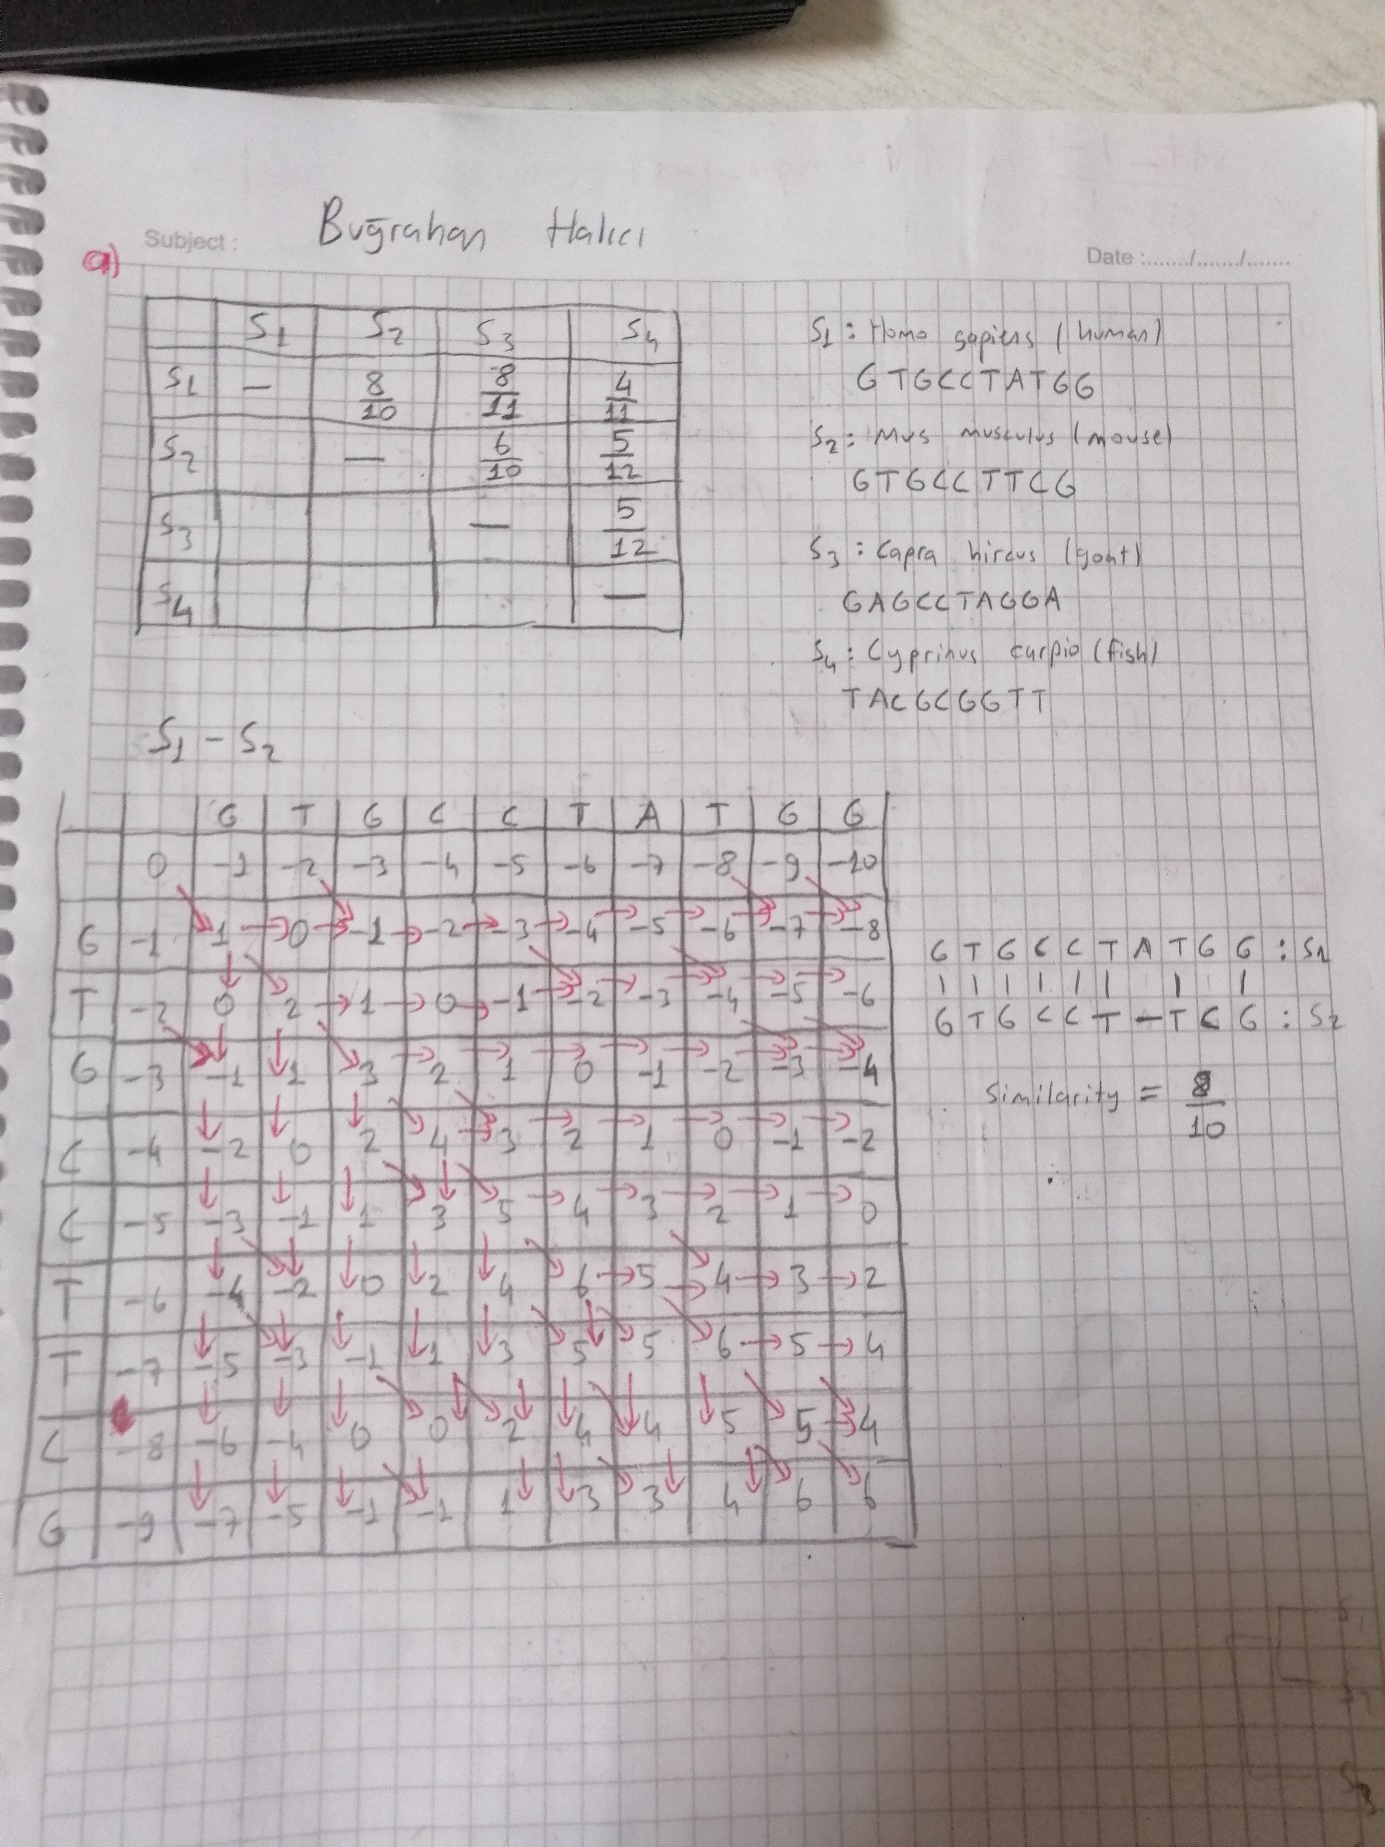 Subject :
Buğrahan Halıcı
Date :......./......./.......
a)
S1 S2 S3 S4
S1 — 8/10 8/11 4/11
S2 — 6/10 5/12
S3 — 5/12
S4 —
S1 : Homo sapiens (human)
GTGCCTATGG
S2 : Mus musculus (mouse)
GTGCCTTCG
S3 : Capra hircus (goat)
GAGCCTAGGA
S4 : Cyprinus carpio (fish)
TACGCGGTT
S1 - S2
G T G C C T A T G G
0 -1 -2 -3 -4 -5 -6 -7 -8 -9 -10
G -1 1 0 -1 -2 -3 -4 -5 -6 -7 -8
T -2 0 2 1 0 -1 -2 -3 -4 -5 -6
G -3 -1 1 3 2 1 0 -1 -2 -3 -4
C -4 -2 0 2 4 3 2 1 0 -1 -2
C -5 -3 -1 1 3 5 4 3 2 1 0
T -6 -4 -2 0 2 4 6 5 4 3 2
T -7 -5 -3 -1 1 3 5 5 6 5 4
C -8 -6 -4 0 0 2 4 4 5 5 4
G -9 -7 -5 -1 -1 1 3 3 4 6 6
G T G C C T A T G G : S1
| | | | | | | |
G T G C C T - T C G : S2
Similarity = 8/10